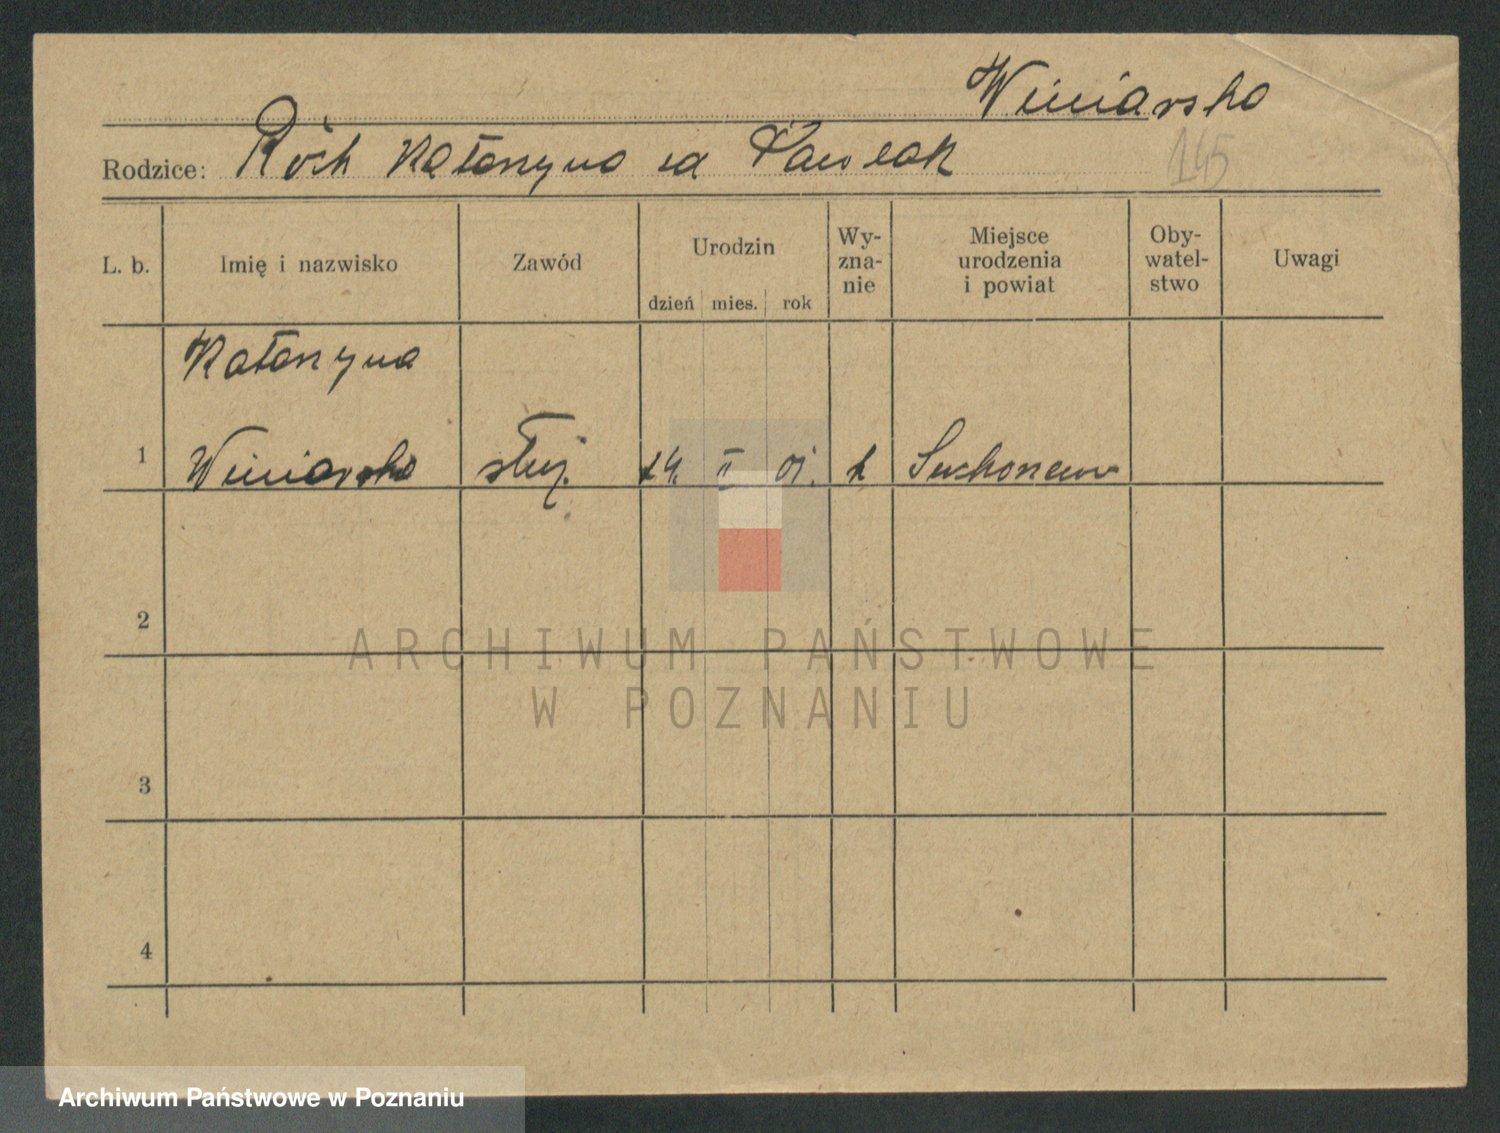 Winiarska
Rodzice: Roch Katarzyna zd Pawlak
145
L. b. Imię i nazwisko Zawód Urodzin dzień mies. rok Wy-zna-nie Miejsce urodzenia i powiat Oby-watel-stwo Uwagi
Katarzyna
1 Winiarska służ. 24. II 01. k
2
ARCHIWUM PAŃSTWOWE
W POZNANIU
3
4
Archiwum Państwowe w Poznaniu